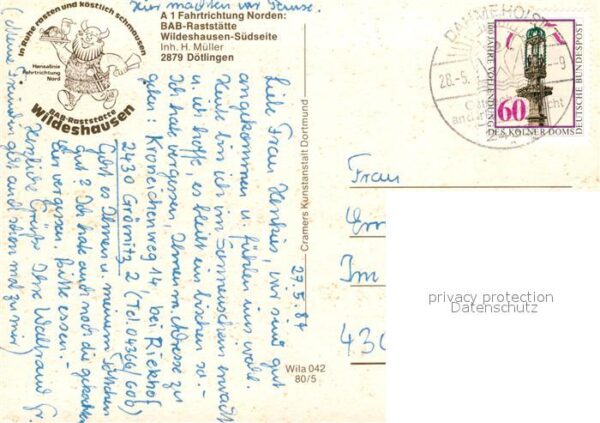 In Ruhe rasten und köstlich schmausen
Hansalinie
Fahrtrichtung
Nord
BAB-Raststätte
Wildeshausen
A 1 Fahrtrichtung Norden:
BAB-Raststätte
Wildeshausen-Südseite
Inh. H. Müller
2879 Dötlingen
Hier machten wir Pause.
27.5.84
Liebe Frau Henkies, wir sind gut
angekommen u. fühlen uns wohl.
Heute bin ich im Sonnenschein erwacht
u. ich hoffe, es bleibt ein bischen so.-
Ich hab vergessen, Ihnen m. Adresse zu
geben: Kroneichenweg 14, bei Riekhof
2430 Grömitz 2 (Tel. 04366/606)
Geht es Ihnen u. meinem
gut? Ich hab auch noch die
vergessen. Bitte essen.-
Herzliche Grüße Ihre Waltraud Gr.
(Meine Freundin geht auch schon mal zu mir)
Cramers Kunstanstalt Dortmund
Wila 042
80/5
DAHME/HOLST
28.-5.
-9
60
100 JAHRE VOLLENDUNG
DES KÖLNER DOMS
DEUTSCHE BUNDESPOST
Frau
Im
430
privacy protection
Datenschutz